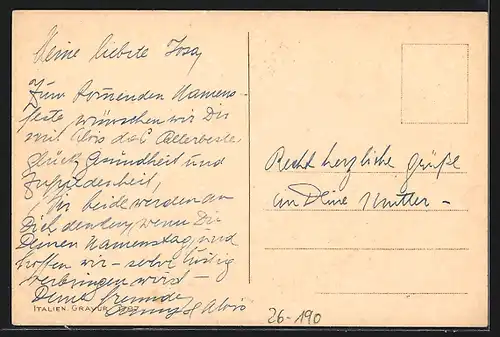 Meine liebste Josa,
Zum kommenden Namens-
feste wünschen wir Dir
mit Alois das Allerbeste
Glück Gesundheit und
Zufriedenheit,
Wir beide werden an
Dich denken, wenn Du
Deinen Namenstag, und
hoffen wir – sehr lustig
verbringen wirst –
Deine Freunde
& Alois
ITALIEN. GRAVUR.
Recht herzliche Grüße
an Deine Mutter –
26-190